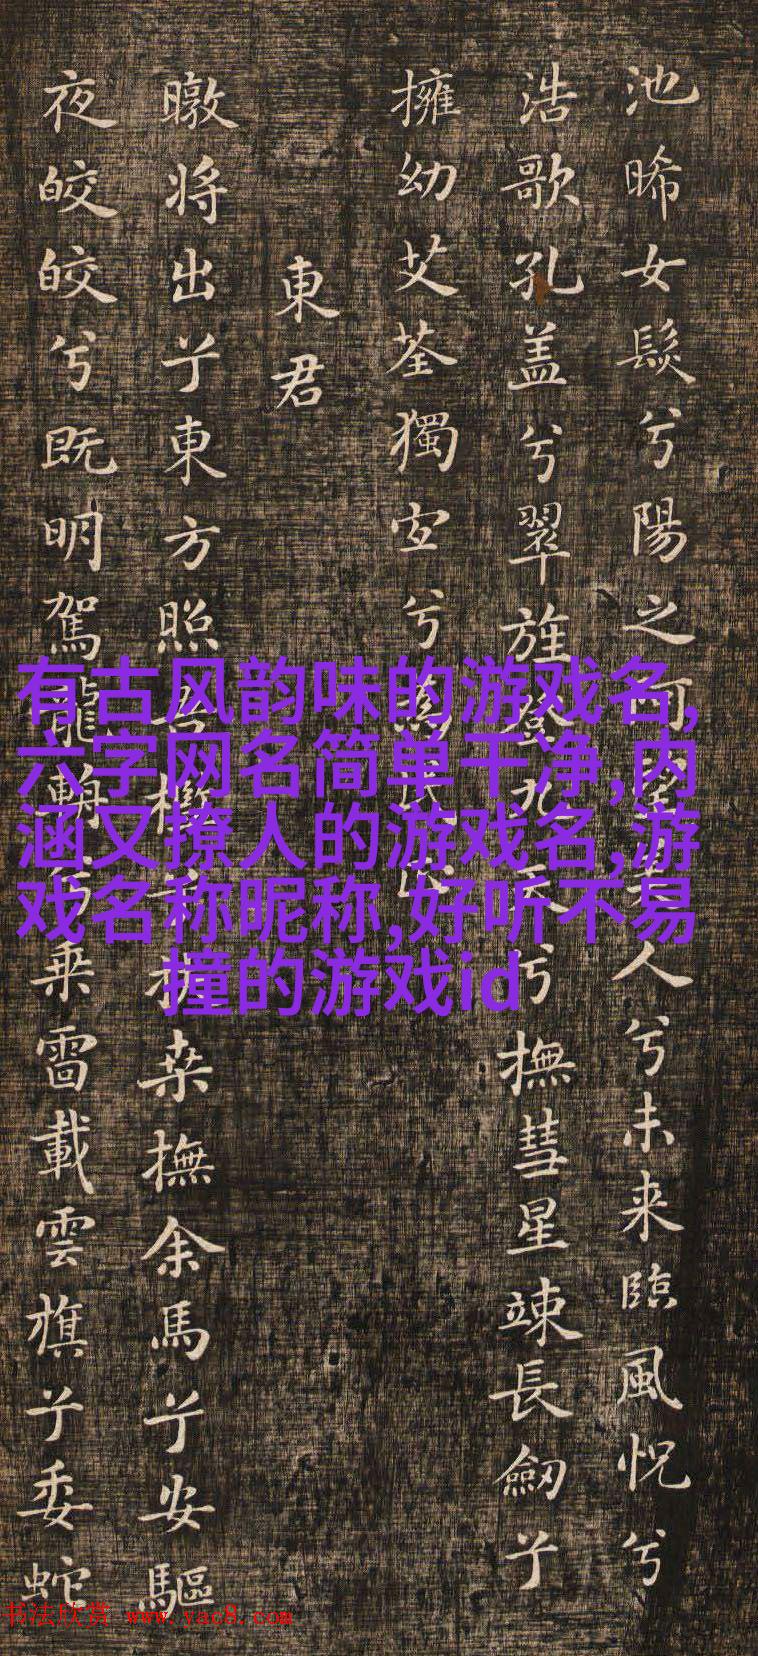 池晞女髮兮陽之人兮未来臨風怳兮
浩歌孔盖兮翠旌登九天兮撫彗星竦長劒兮
擁幼艾荃獨宜兮
東君
暾将出兮東方照吾檻兮扶桒撫余馬兮安驅
夜皎皎兮既明駕龍輈兮乗雷載雲旗兮委蛇
有古风韵味的游戏名,
六字网名简单干净,内
涵又撩人的游戏名,游
戏名称昵称,好听不易
撞的游戏id
书法欣赏 www.yac8.com